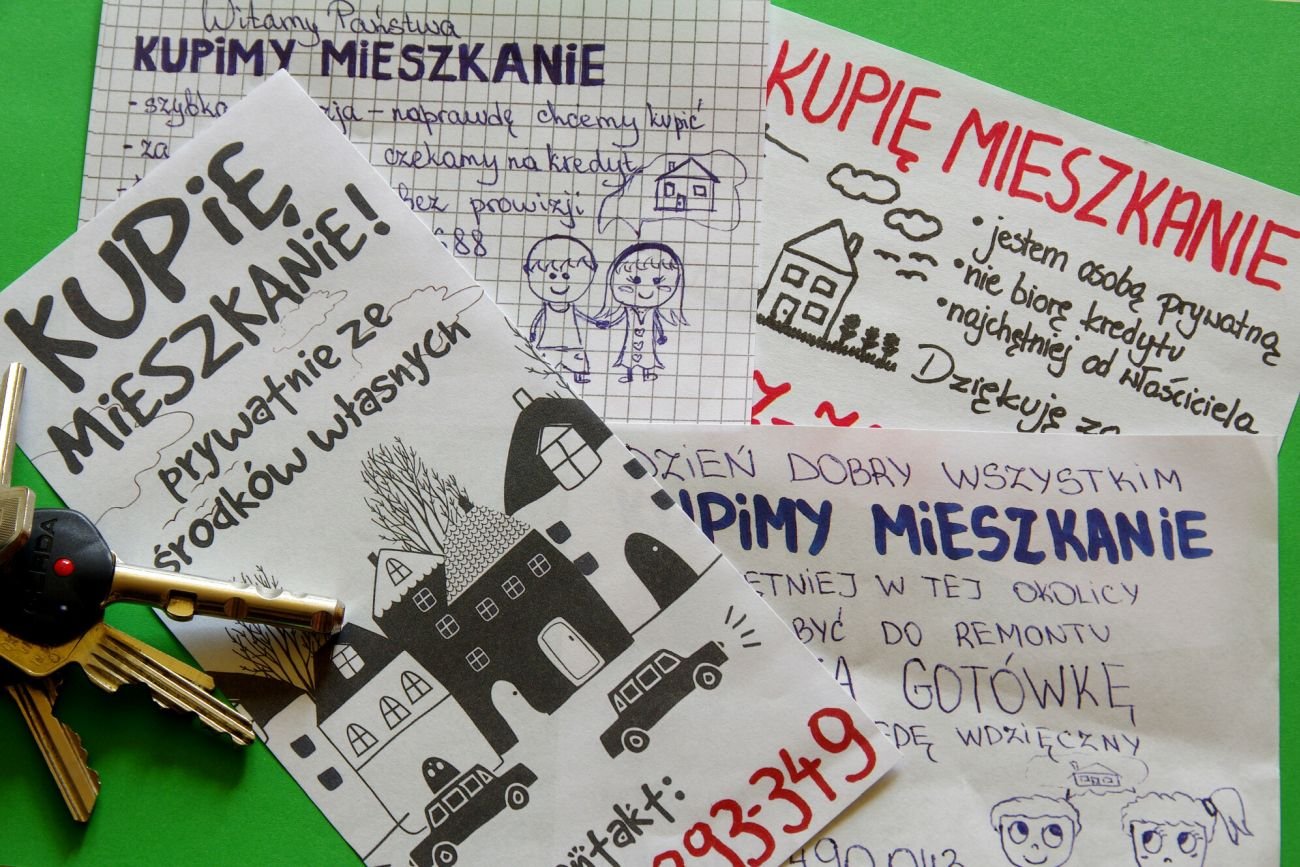 Witamy Państwa
KUPiMY MiESZKANiE
- naprawdę chcemy kupić
czekamy na kredyt
bez prowizji
688
KUPIĘ MIESZKANIE
• jestem osobą prywatną
• nie biorę kredytu
• najchętniej od właściciela
Dziękuję za
KUPiĘ
MiESZKANiE!
prywatnie ze
środków własnych
93-349
DZIEŃ DOBRY WSZYSTKIM
UPiMY MiESZKANiE
ĘTNIEJ W TEJ OKOLICY
BYĆ DO REMONTU
A GOTÓWKĘ
ĘDĘ WDZIĘCZNY